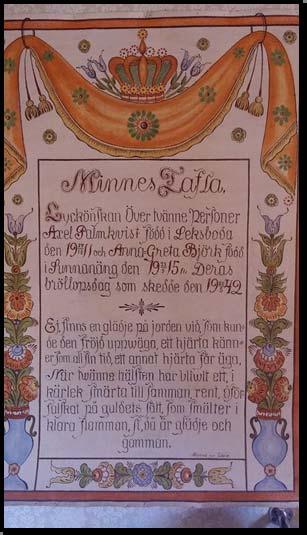 Minnes Tafla,
Lyckönskan Över tvänne Personer
Axel Palmkvist född i Leksboda
den 19 11 och Anna-Greta Björk född
i Sunnanäng den 19 15. Deras
bröllopsdag som skedde den 19 42
Ej finns en glädje på jorden vid, som kun-
de den fröjd uppwäga, ett hjärta känn-
er som all sin tid, ett annat hjärta får äga,
När twänne hälften har bliwit ett, i
kärlek smärta till samman, rent, oför
falskat på guldets sätt, som smälter i
klara flamman, si, då är glädje och
gamman.